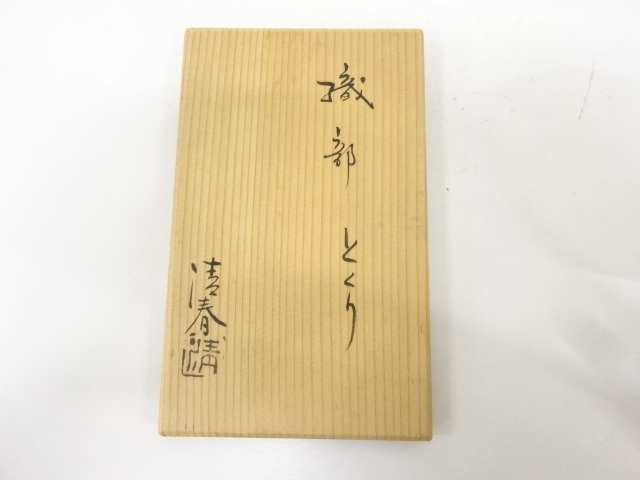 織部 とくり
清春